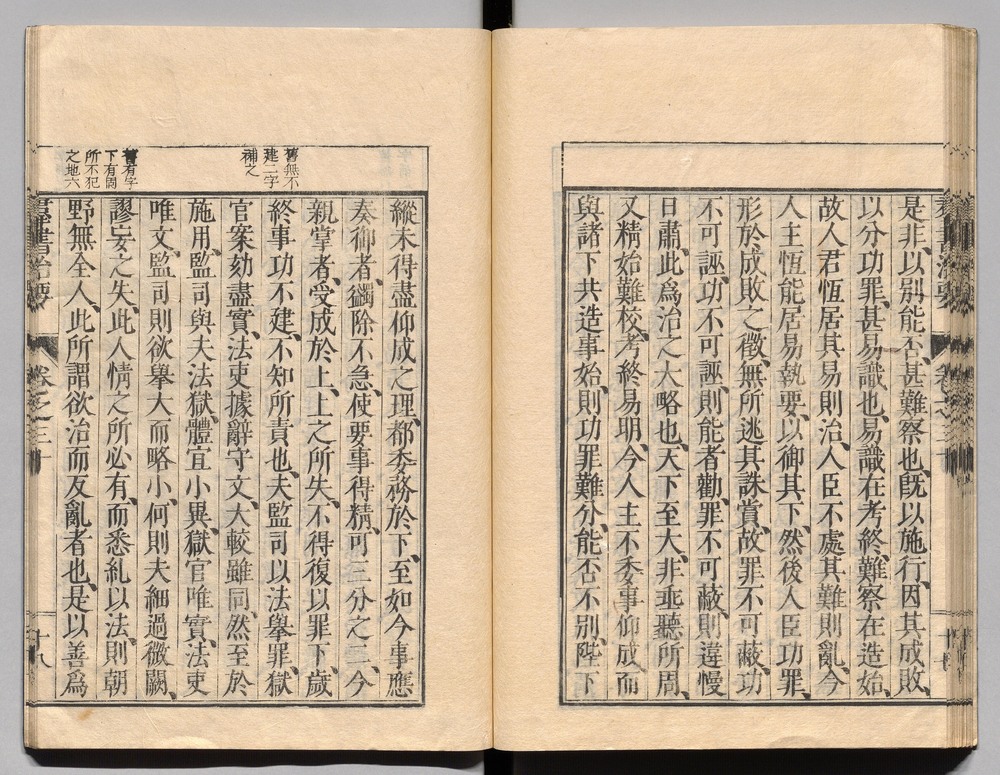 是非、以別能否、甚難察也、既以施行、因其成敗、
以分功罪、甚易識也、易識在考終、難察在造始、
故人君恆居其易則治、人臣不處其難則亂、今
人主恆能居易執要、以御其下、然後人臣功罪、
形於成敗之徵、無所逃其誅賞、故罪不可蔽、功
不可誣、功不可誣、則能者勸、罪不可蔽、則違慢
日肅、此爲治之大略也、天下至大、非垂聽所周、
又精始難校、考終易明、今人主不委事仰成、而
與諸下共造事始、則功罪難分、能否不別、陛下
縱未得盡仰成之理、都委務於下、至如今事應
奏御者、蠲除不急、使要事得精、可三分之二、今
親掌者、受成於上、上之所失、不得復以罪下、歲
終事功不建、不知所責也、夫監司以法舉罪、獄
官案劾盡實、法吏據辭守文、大較雖同、然至於
施用、監司與夫法獄、體宜小異、獄官唯實、法吏
唯文、監司則欲舉大而略小、何則夫細過微闕、
謬妄之失、此人情之所必有、而悉糺以法、則朝
野無全人、此所謂欲治而反亂者也、是以善爲
舊無不
建二字
補之
舊有字
下有罔
所不犯
之地六
群書治要
卷之三十
十八